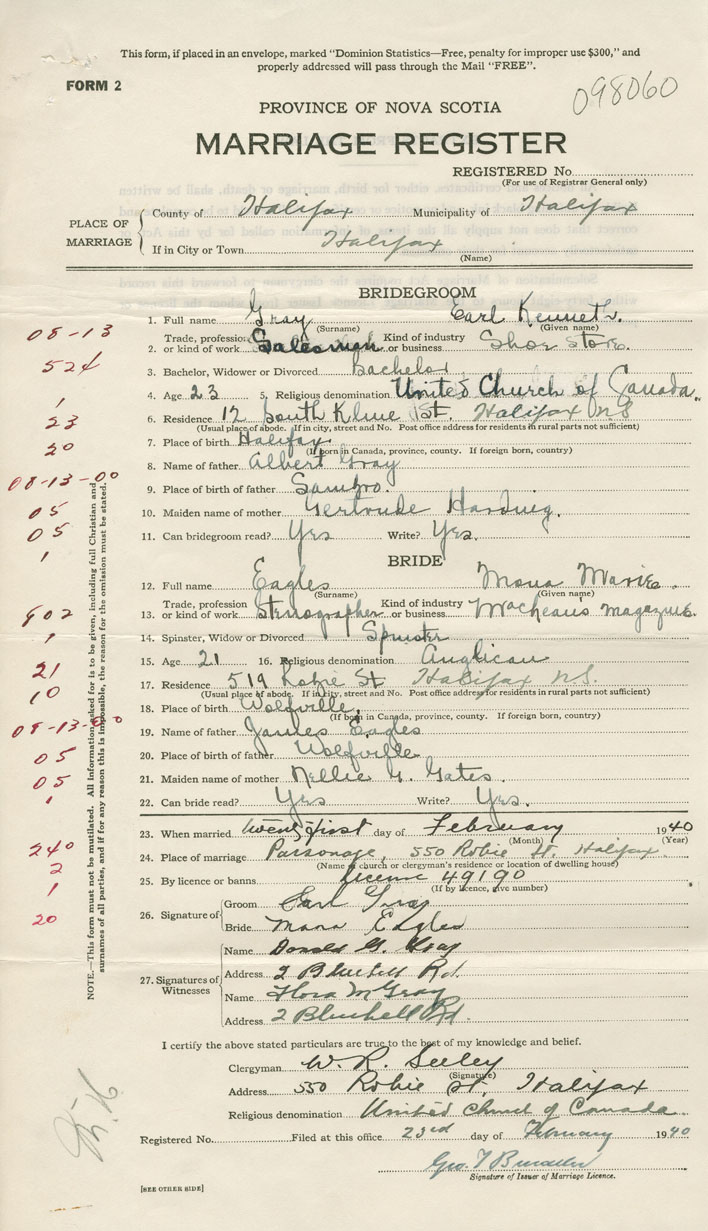 This form, if placed in an envelope, marked "Dominion Statistics—Free, penalty for improper use $300," and
properly addressed will pass through the Mail "FREE".
FORM 2
098060
PROVINCE OF NOVA SCOTIA
MARRIAGE REGISTER
REGISTERED No.
(For use of Registrar General only)
PLACE OF MARRIAGE
County of Halifax Municipality of Halifax
If in City or Town Halifax
(Name)
BRIDEGROOM
1. Full name Gray Earl Kenneth.
(Surname) (Given name)
08-13
2. Trade, profession or kind of work Salesman Kind of industry or business Shoe Store.
524
3. Bachelor, Widower or Divorced Bachelor
1
4. Age 23 5. Religious denomination United Church of Canada.
23
6. Residence 12 South Kline St. Halifax N.S.
(Usual place of abode. If in city, street and No. Post office address for residents in rural parts not sufficient)
20
7. Place of birth Halifax
(If born in Canada, province, county. If foreign born, country)
8. Name of father Albert Gray
08-13-00
9. Place of birth of father Sambro.
05
10. Maiden name of mother Gertrude Harding.
05
11. Can bridegroom read? Yes Write? Yes.
1
BRIDE
12. Full name Eagles Mona Marie.
(Surname) (Given name)
902
13. Trade, profession or kind of work Stenographer Kind of industry or business Macleans Magazine.
1
14. Spinster, Widow or Divorced Spinster
15. Age 21 16. Religious denomination Anglican
21
17. Residence 519 Robie St Halifax N.S.
(Usual place of abode. If in city, street and No. Post office address for residents in rural parts not sufficient)
10
18. Place of birth Wolfville.
(If born in Canada, province, county. If foreign born, country)
08-13-00
19. Name of father James Eagles
05
20. Place of birth of father Wolfville
05
21. Maiden name of mother Nellie G. Gates.
1
22. Can bride read? Yes Write? Yes.
23. When married twenty first day of February 1940
(Month) (Year)
240
24. Place of marriage Parsonage, 550 Robie St. Halifax
(Name of church or clergyman's residence or location of dwelling house)
2
25. By licence or banns licence 49190
(If by licence, give number)
1
26. Signature of
Groom Earl Gray
20
Bride Mona Eagles
27. Signatures of Witnesses
Name Donald G. Gray
Address 2 Bluebell Rd.
Name Flora M Gray
Address 2 Bluebell Rd.
NOTE.—This form must not be mutilated. All information asked for is to be given, including full Christian and
surnames of all parties, and if for any reason this is impossible, the reason for the omission must be stated.
I certify the above stated particulars are true to the best of my knowledge and belief.
Clergyman W. R. Seeley
(Signature)
Address 550 Robie St. Halifax
Religious denomination United Church of Canada
Registered No. Filed at this office 23rd day of February 1940
Geo. T
Signature of Issuer of Marriage Licence.
[SEE OTHER SIDE]